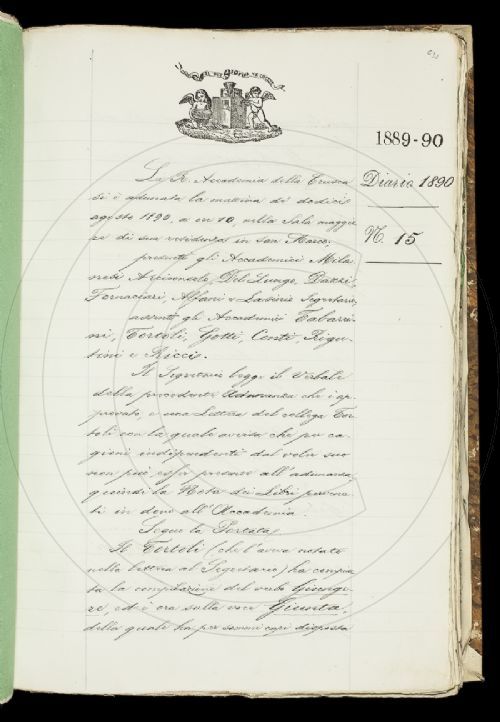 1889-90
Diario 1890
N. 15
La R. Accademia della Crusca
si è adunata la mattina dì dodici
agosto 1890, a ore 10, nella Sala maggio-
re di sua residenza in San Marco,
presenti gli Accademici Mila-
nesi Arciconsolo, Del Lungo, Dazzi,
Fornaciari, Alfani e Lasinio Segretario,
assenti gli Accademici Tabarri-
ni, Tortoli, Gotti, Conti, Rigu-
tini e Ricci.
Il Segretario legge il Verbale
della precedente Adunanza che è ap-
provato, e una Lettera del collega Tor-
toli con la quale avvisa che per ca-
gioni indipendenti dal voler suo
non può esser presente all'adunanza,
quindi la Nota dei Libri perve-
ti in dono all'Accademia.
Segue la Portata,
Il Tortoli (che l'aveva notata
nella lettera al Segretario) ha compiu-
ta la compilazione del verbo Giunge-
re, ed è ora sulla voce Giunta,
della quale ha per sommi capi disposta